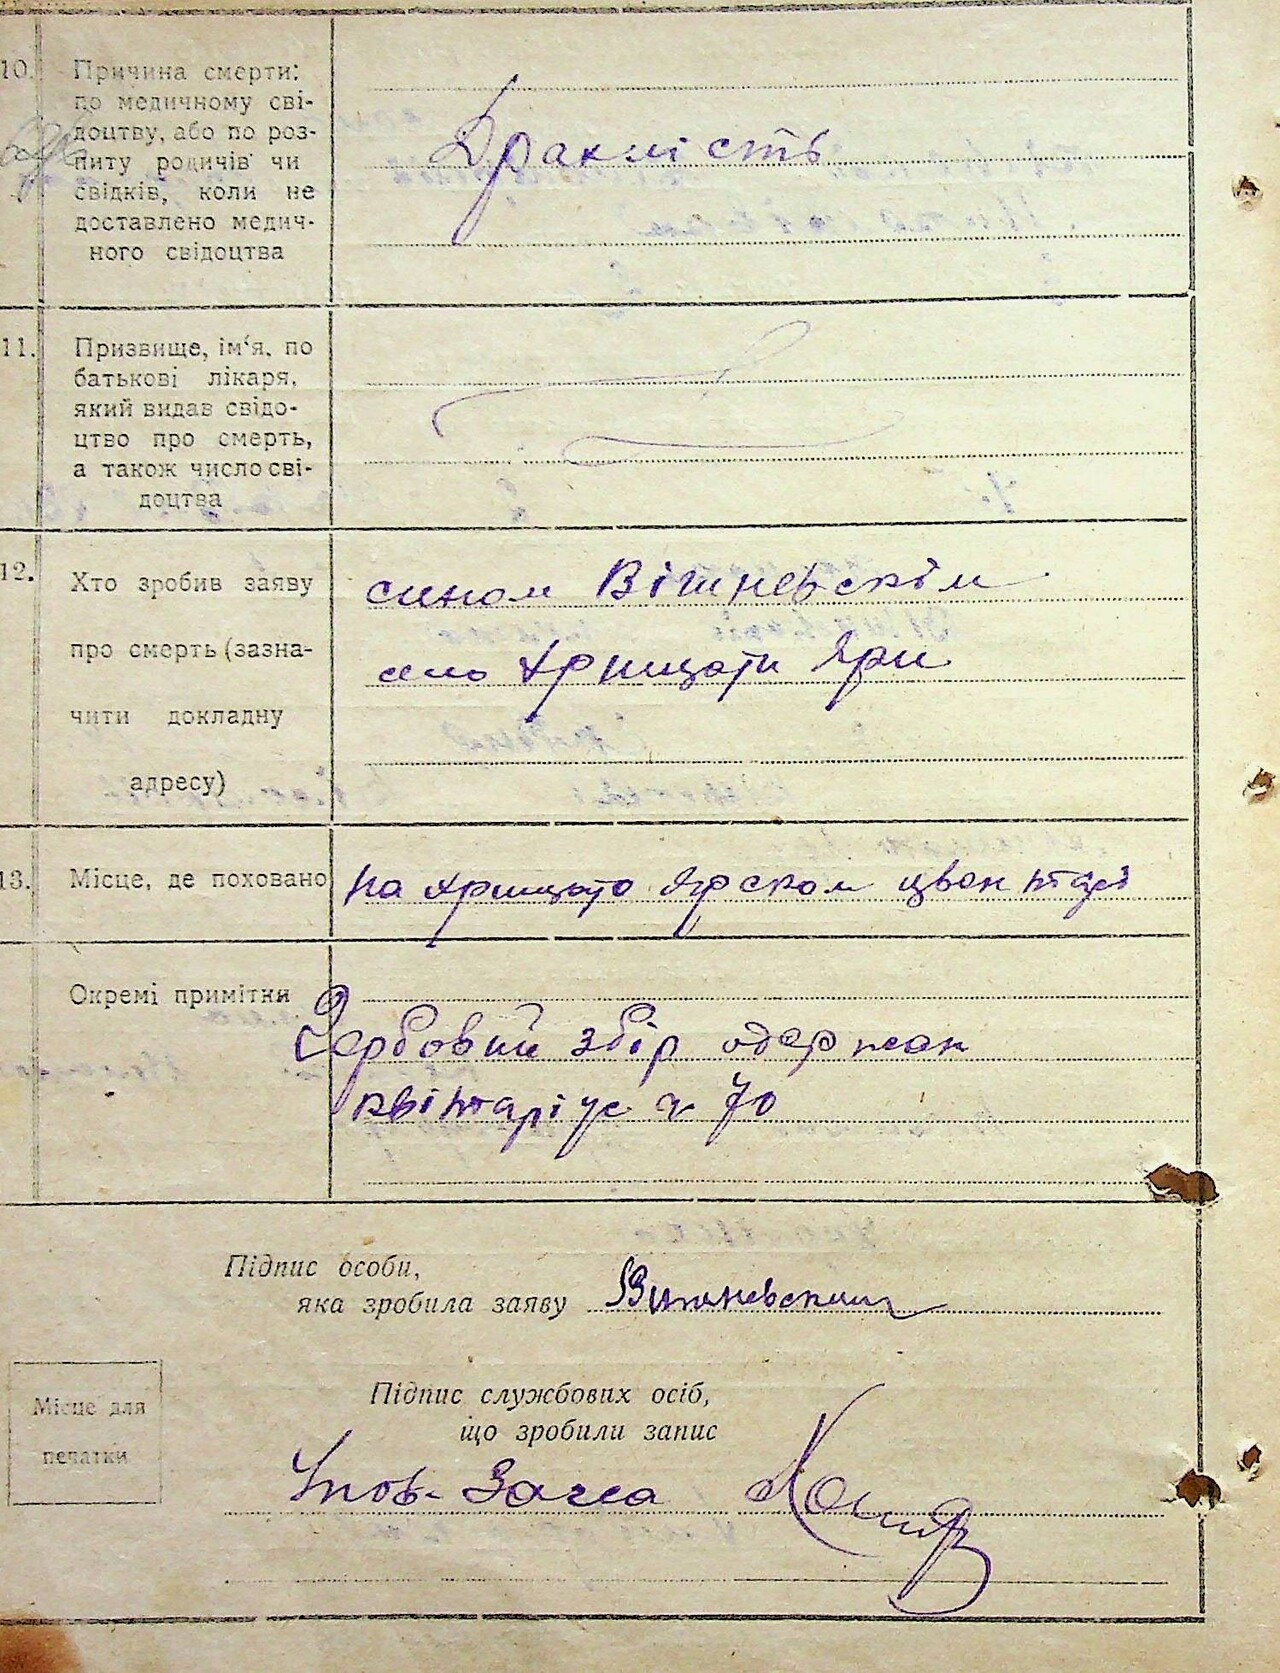 10. Причина смерти:
по медичному сві-
доцтву, або по роз-
питу родичів чи
свідків, коли не
доставлено медич-
ного свідоцтва
Драхлість
11. Призвище, ім‘я, по
батькові лікаря,
який видав свідо-
цтво про смерть,
а також число сві-
доцтва
12. Хто зробив заяву
про смерть (зазна-
чити докладну
адресу)
сином Вішневскім
село Хрищати Яри
13. Місце, де поховано
на Хрищато Ярском цвентарі
Окремі примітки
Гербовий збір одержан
квітаріус ч 70
Підпис особи,
яка зробила заяву Вишневский
Місце для
печатки
Підпис службових осіб,
що зробили запис
Упов. Загса